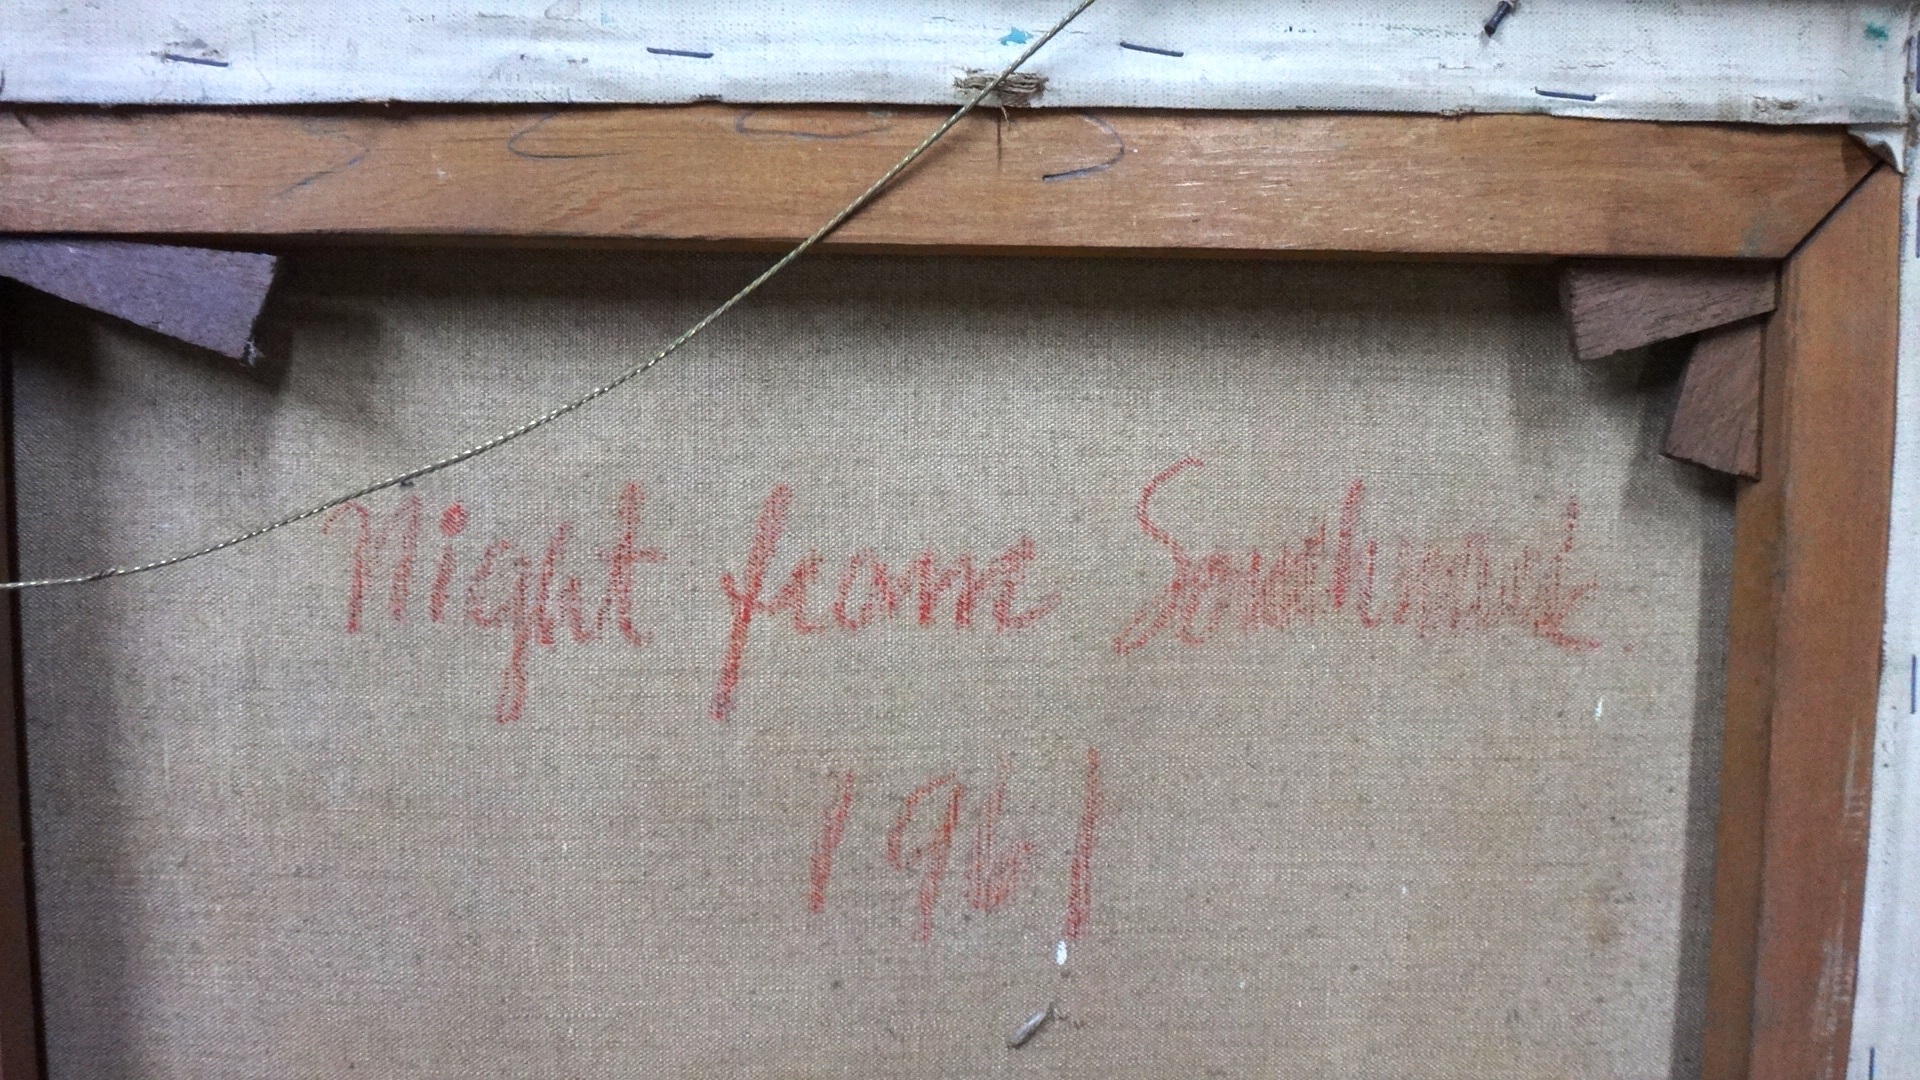 Night from Southwark
1961